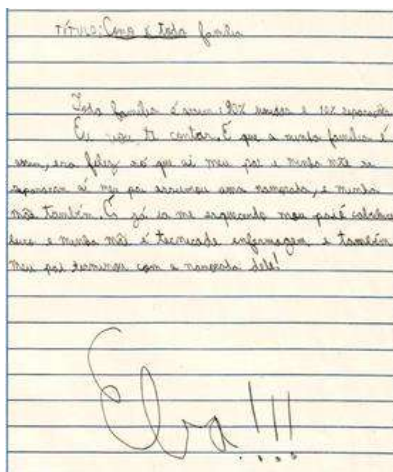 TÍTULO: Como é toda família
Toda família é assim: 90% unidas e 10% separação
Eu vou te contar. É que a minha família é
assim, era feliz só que ai meu pai e minha mãe se
separaram ai meu pai arrumou uma namorada, e minha
mãe também. E já ia me esquecendo meu pai é
e minha mãe é tecnica de enfermagem e também
meu pai terminou com a namorada dele!
!!!